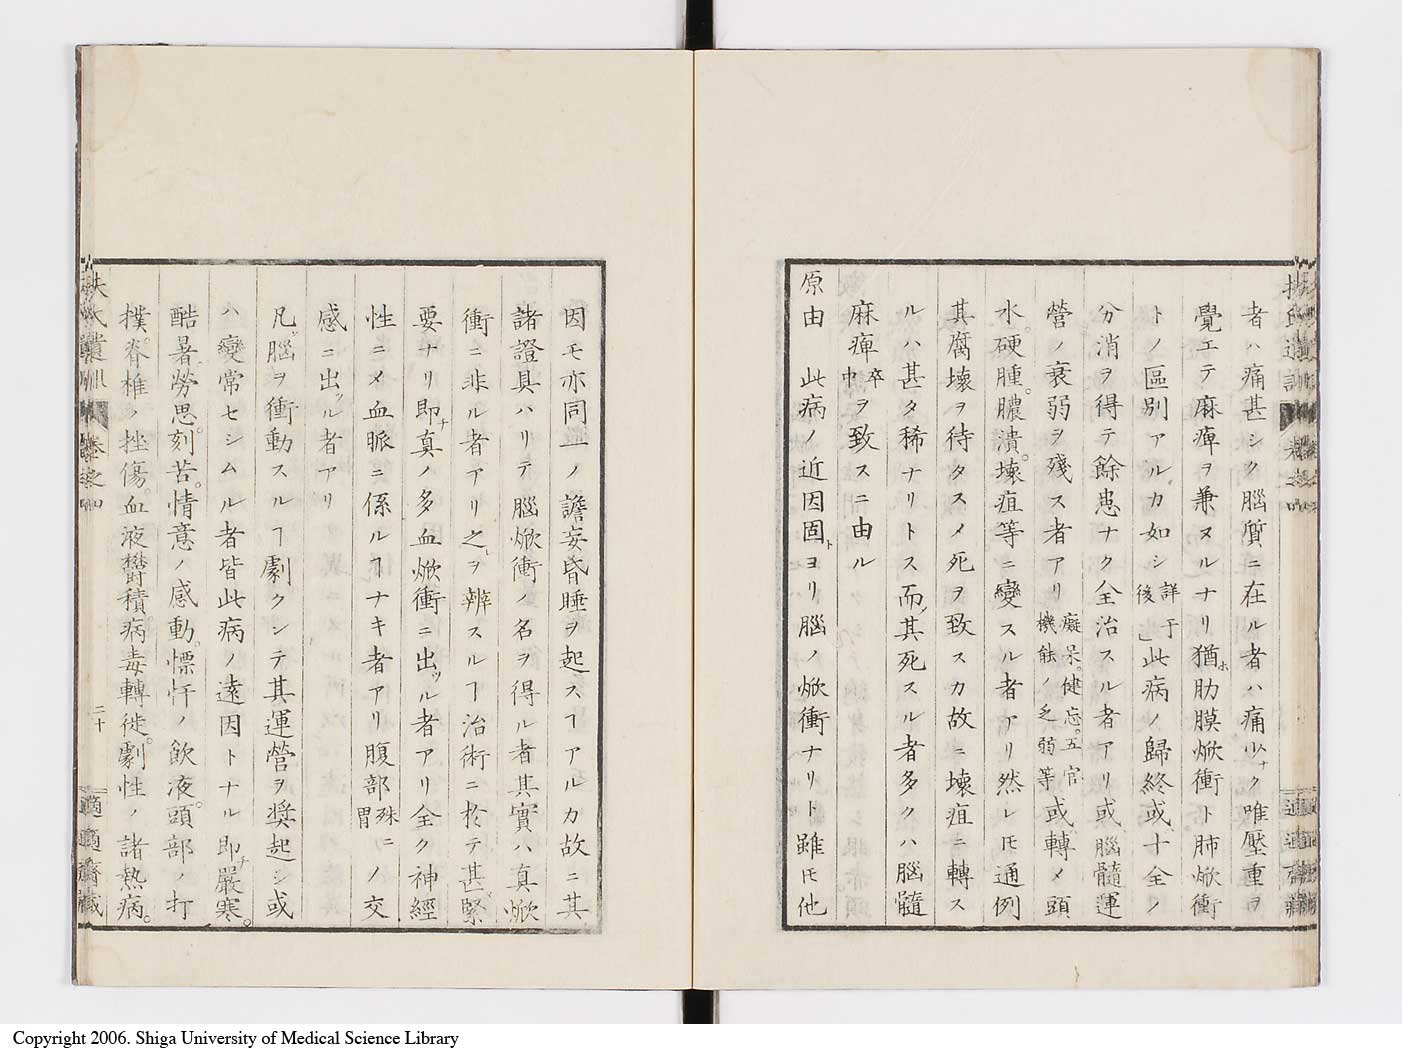 者ハ痛甚シク腦質ニ在ル者ハ痛少ナク唯壓重ヲ
覺エテ麻痺ヲ兼ヌルナリ猶ホ肋膜焮衝ト肺焮衝
トノ區別アルカ如シ詳于後」此病ノ歸終或十全ノ
分消ヲ得テ餘患ナク全治スル者アリ或腦髓運
營ノ衰弱ヲ殘ス者アリ癡呆。健忘。五官機能ノ乏弱等或轉メ頭
水。硬腫。膿潰。壞疽等ニ變スル者アリ然レ𪜈通例
其腐壞ヲ待タスメ死ヲ致スカ故ニ壞疽ニ轉ス
ルハ甚タ稀ナリトス而其死スル者多クハ腦髓
麻痺卒中ヲ致スニ由ル
原由 此病ノ近因固トヨリ腦ノ焮衝ナリト雖𪜈他
因モ亦同一ノ譫妄昏睡ヲ起スヿアルカ故ニ其
諸證具ハリテ腦焮衝ノ名ヲ得ル者其實ハ真焮
衝ニ非ル者アリ之レヲ辨スルヿ治術ニ於テ甚タ緊
要ナリ即チ真ノ多血焮衝ニ出ツル者アリ全ク神經
性ニメ血脈ニ係ルヿナキ者アリ腹部殊ニ胃ノ交
感ニ出ツル者アリ
凡ソ腦ヲ衝動スルヿ劇クシテ其運營ヲ奬起シ或
ハ變常セシムル者皆此病ノ遠因トナル即チ嚴寒。
酷暑。勞思。刻苦。情意ノ感動。慓悍ノ飲液。頭部ノ打
撲。脊椎ノ挫傷。血液鬱積。病毒轉徙。劇性ノ諸熱病。
扶氏遺訓 卷之四
二十
適適齋藏